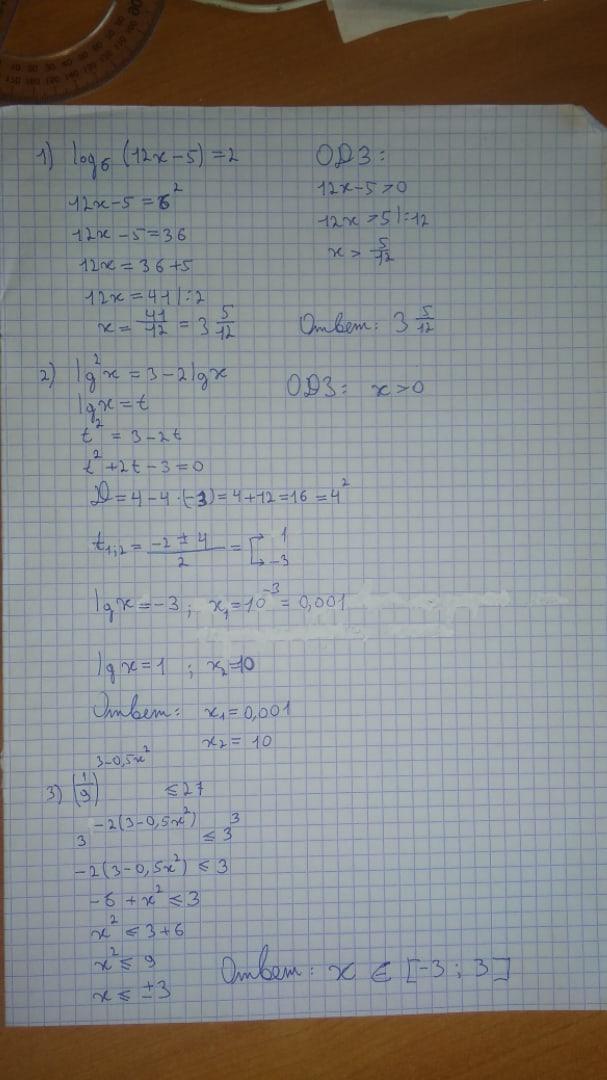 1) log₆ (12x-5) = 2
12x-5 = 6²
12x - 5 = 36
12x = 36+5
12x = 41 |:2
x = 41/12 = 3 5/12
ОДЗ:
12x-5 > 0
12x > 5 |:12
x > 5/12
Ответ: 3 5/12
2) lg²x = 3 - 2lgx
ОДЗ: x > 0
lgx = t
t² = 3 - 2t
t² + 2t - 3 = 0
D = 4 - 4·(-3) = 4+12 = 16 = 4²
t₁;₂ = (-2 ± 4)/2 = [ 1
-3
lgx = -3 ; x₁ = 10⁻³ = 0,001
lgx = 1 ; x₂ = 10
Ответ: x₁ = 0,001
x₂ = 10
3) (1/9)^(3-0,5x²) ≤ 27
3^(-2(3-0,5x²)) ≤ 3³
-2(3-0,5x²) ≤ 3
-6 + x² ≤ 3
x² ≤ 3+6
x² ≤ 9
x ≤ ±3
Ответ: x ∈ [-3 ; 3]